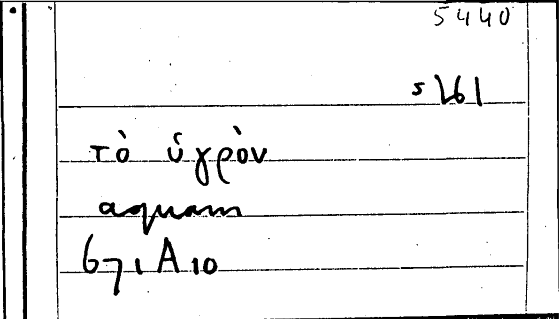 5440
5261
τὸ ὑγρὸν
aquam
671 A 10